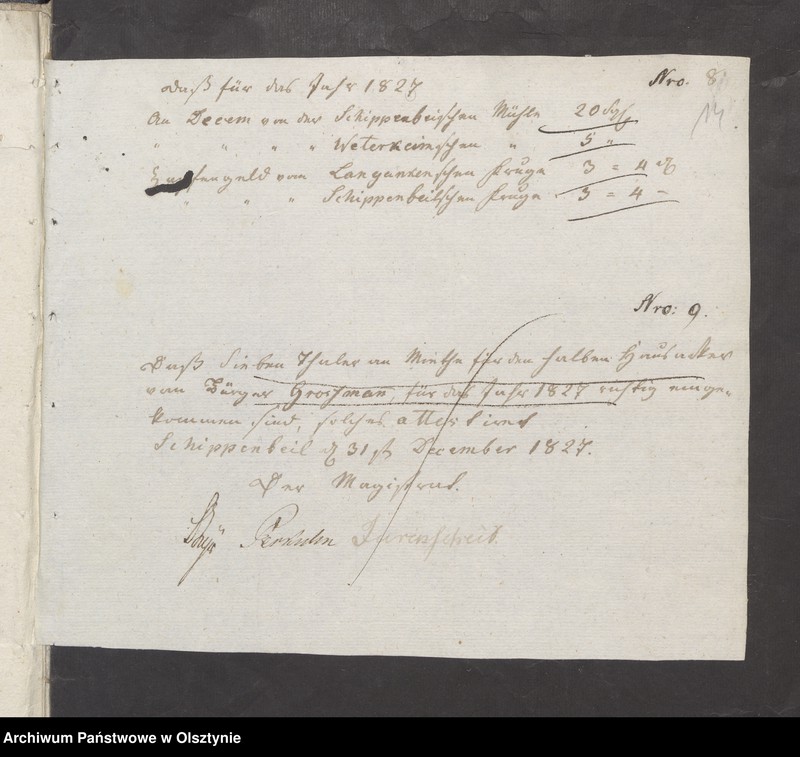 Nro. 8
14
Daß für das Jahr 1827
An Decem von der Schippenbeilschen Mühle 20 Sgr
" " " " Weterkeimschen " 5 "
vom Langankenschen Kruge 3 = 4 d
" " " Schippenbeilschen Kruge 3 = 4 -
Nro: 9.
Daß Sieben Thaler an Miethe für den halben Hausacker
vom Bürger Grochman, für das Jahr 1827 richtig einge-
kommen sind, solches attestiret
Schippenbeil d 31st December 1827.
Der Magistrat.